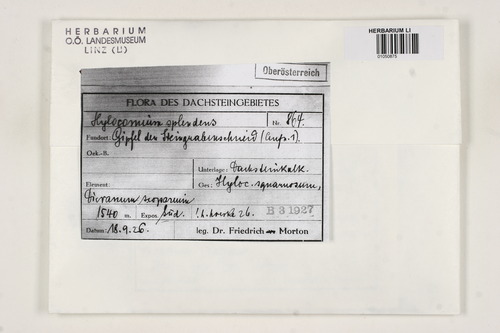 HERBARIUM
O.Ö. LANDESMUSEUM
LINZ (LI)
HERBARIUM LI
01050875
Oberösterreich
FLORA DES DACHSTEINGEBIETES
Hylocomium splendens Nr. 864.
Fundort: Gipfel der Steingrabenschneid (Aufs. 1).
Oek.-B.
Unterlage: Dachsteinkalk.
Element: Ges: Hyloc. squarrosum,
Dicranum scoparium
1540 m. Expos. Süd. 26. B 3 1927
Datum: 18.9.26. leg. Dr. Friedrich Morton